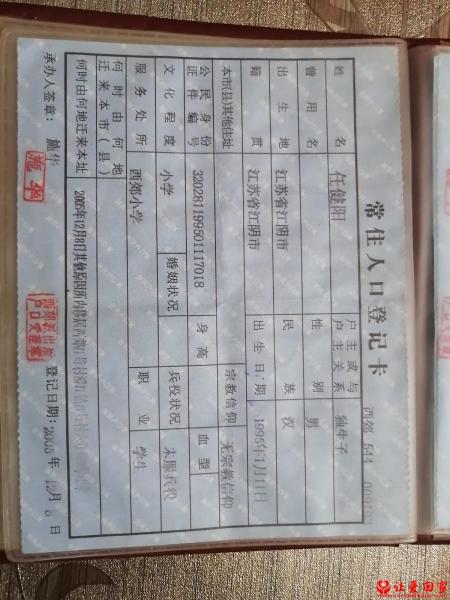 常住人口登记卡
西郊 544
姓名 任健阳 户主或与户主关系 独生子
曾用名 性别 男
出生地 江苏省江阴市 民族 汉
籍贯 江苏省江阴市 出生日期 1995年1月11日
本市(县)其他住址 宗教信仰 无宗教信仰
公民身份证件编号 320281199501117018 身高 血型
文化程度 小学 婚姻状况 兵役状况 未服兵役
服务处所 西郊小学 职业 学生
何时由何地迁来本市(县)
何时由何地迁来本址 2005年12月8日其他原因所内移居
承办人签章: 施华 登记日期: 2005年12月8日
施华
西郊派出所
户口专用章
让爱回家